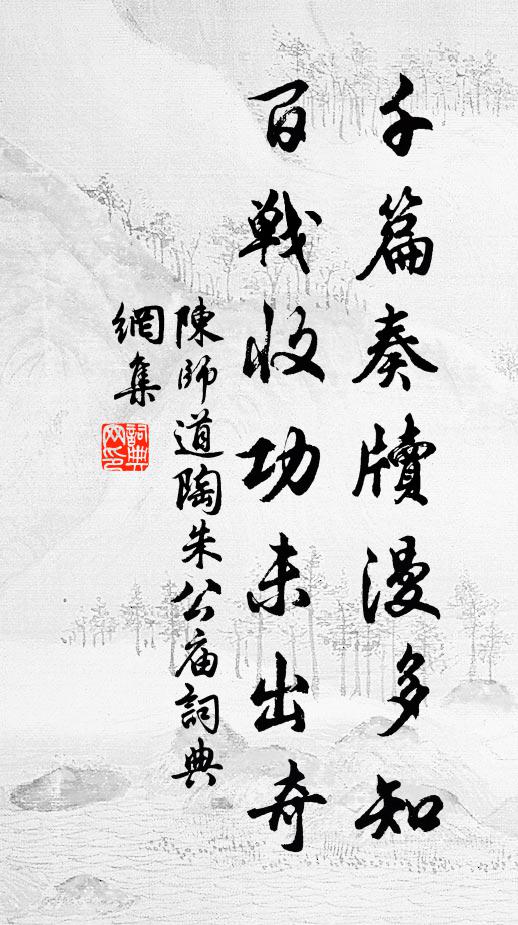 千篇奏牘漫多知
百戦收功未出奇
陳師道陶朱公庙詞典
網集
詞典网印